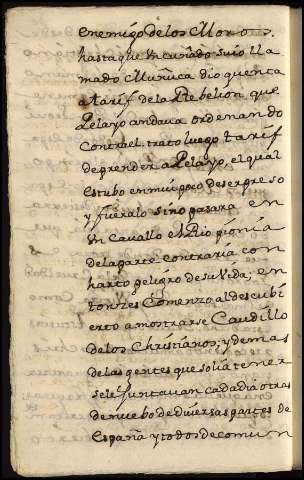 enemigo de los Moros.
hasta que Un cuñado suio lla
mado Munuca dio quenta
a tarif de la Rebelion que
Pelayo andaua ordenando
Contra el trato luego tarif
de prender a Pelayo, el qual
estubo en mui poco de ser preso
y fueralo sino pasara en
Un Cauallo el Rio pionia
de la parte contraria con
harto peligro de su Vida; en
tonzes Comenzo al descubi
erto a mostrarse Caudillo
de los Christianos; y demas
de las gentes que solia tener
se le Juntauan cada dia otras
de nuebo de diuersas partes de
España y todos de comun